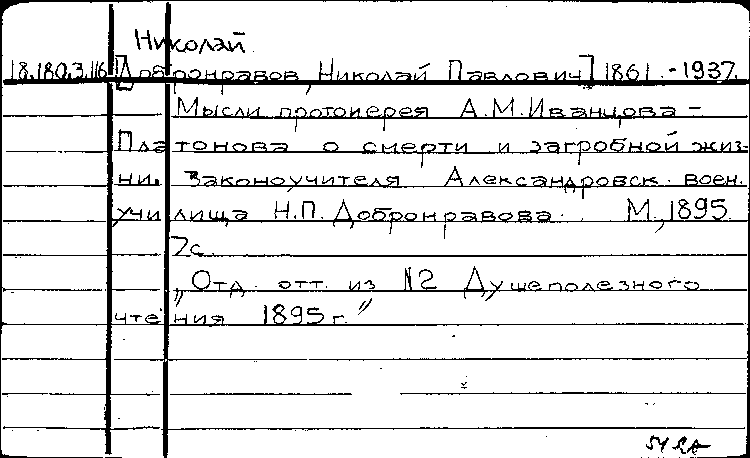 Николай
18.180.3.116 [Добронравов, Николай Павлович] 1861.-1937.
Мысли протоиерея А.М.Иванцова-
Платонова о смерти и загробной жиз-
ни. Законоучителя Александровск. воен.
училища Н.П. Добронравова. М., 1895
7с.
„Отд. отт. из №2 Душеполезного
чтения 1895г."